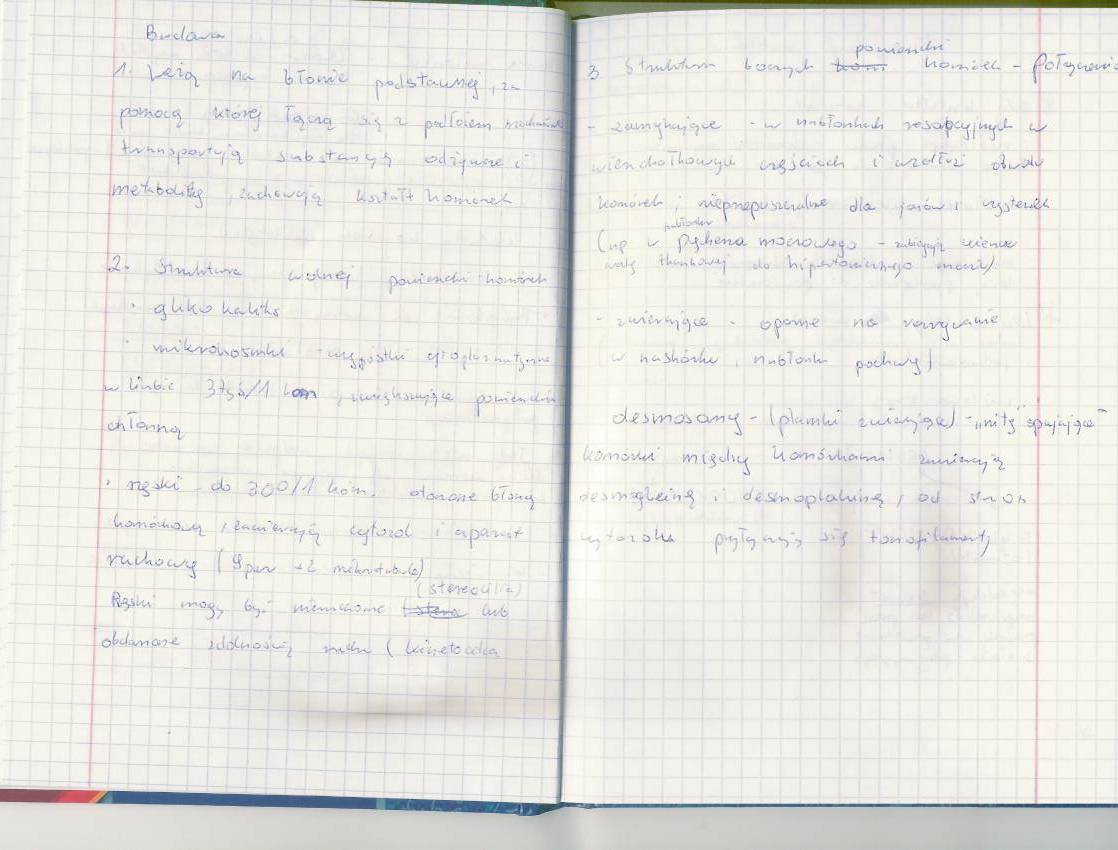 Budowa
1. Leżą na błonie podstawnej, za
pomocą której łączą się z podłożem mechanicznie
transportują substancje odżywcze i
metabolity, zachowują kształt komórek
2. Struktura wolnej powierzchni komórek
· glikokaliks
· mikrokosmki - wypustki cytoplazmatyczne
w liczbie 3tyś/1 kom, zwiększające powierzchnię
chłonną
· rzęski - do 300/1 kom. otoczone błoną
komórkową, zawierają cytozol i aparat
ruchowy (9 par + 2 mikrotubule)
(stereocilia)
Rzęski mogą być nieruchome lub
obdarzone zdolnością ruchu (kinetocilia
powierzchni
3 Struktura bocznych komórek - Połączenia
- zamykające - w nabłonkach resorpcyjnych w
wierzchołkowych częściach i wzdłuż obwodu
komórek, nieprzepuszczalne dla jonów i cząsteczek
nabłonku
(np w pęcherza moczowego - zabiegają
wody tkankowej do hipertonicznego moczu)
- zwierające - oporne na rozrywanie
(w naskórku, nabłonku pochwy)
desmosomy - (plamki zwierające) - „nity" spajające
komórki między komórkami zawierają
desmogleinę i desmoplakinę, od stron
cytozolu przyłączają się tonofilamenty